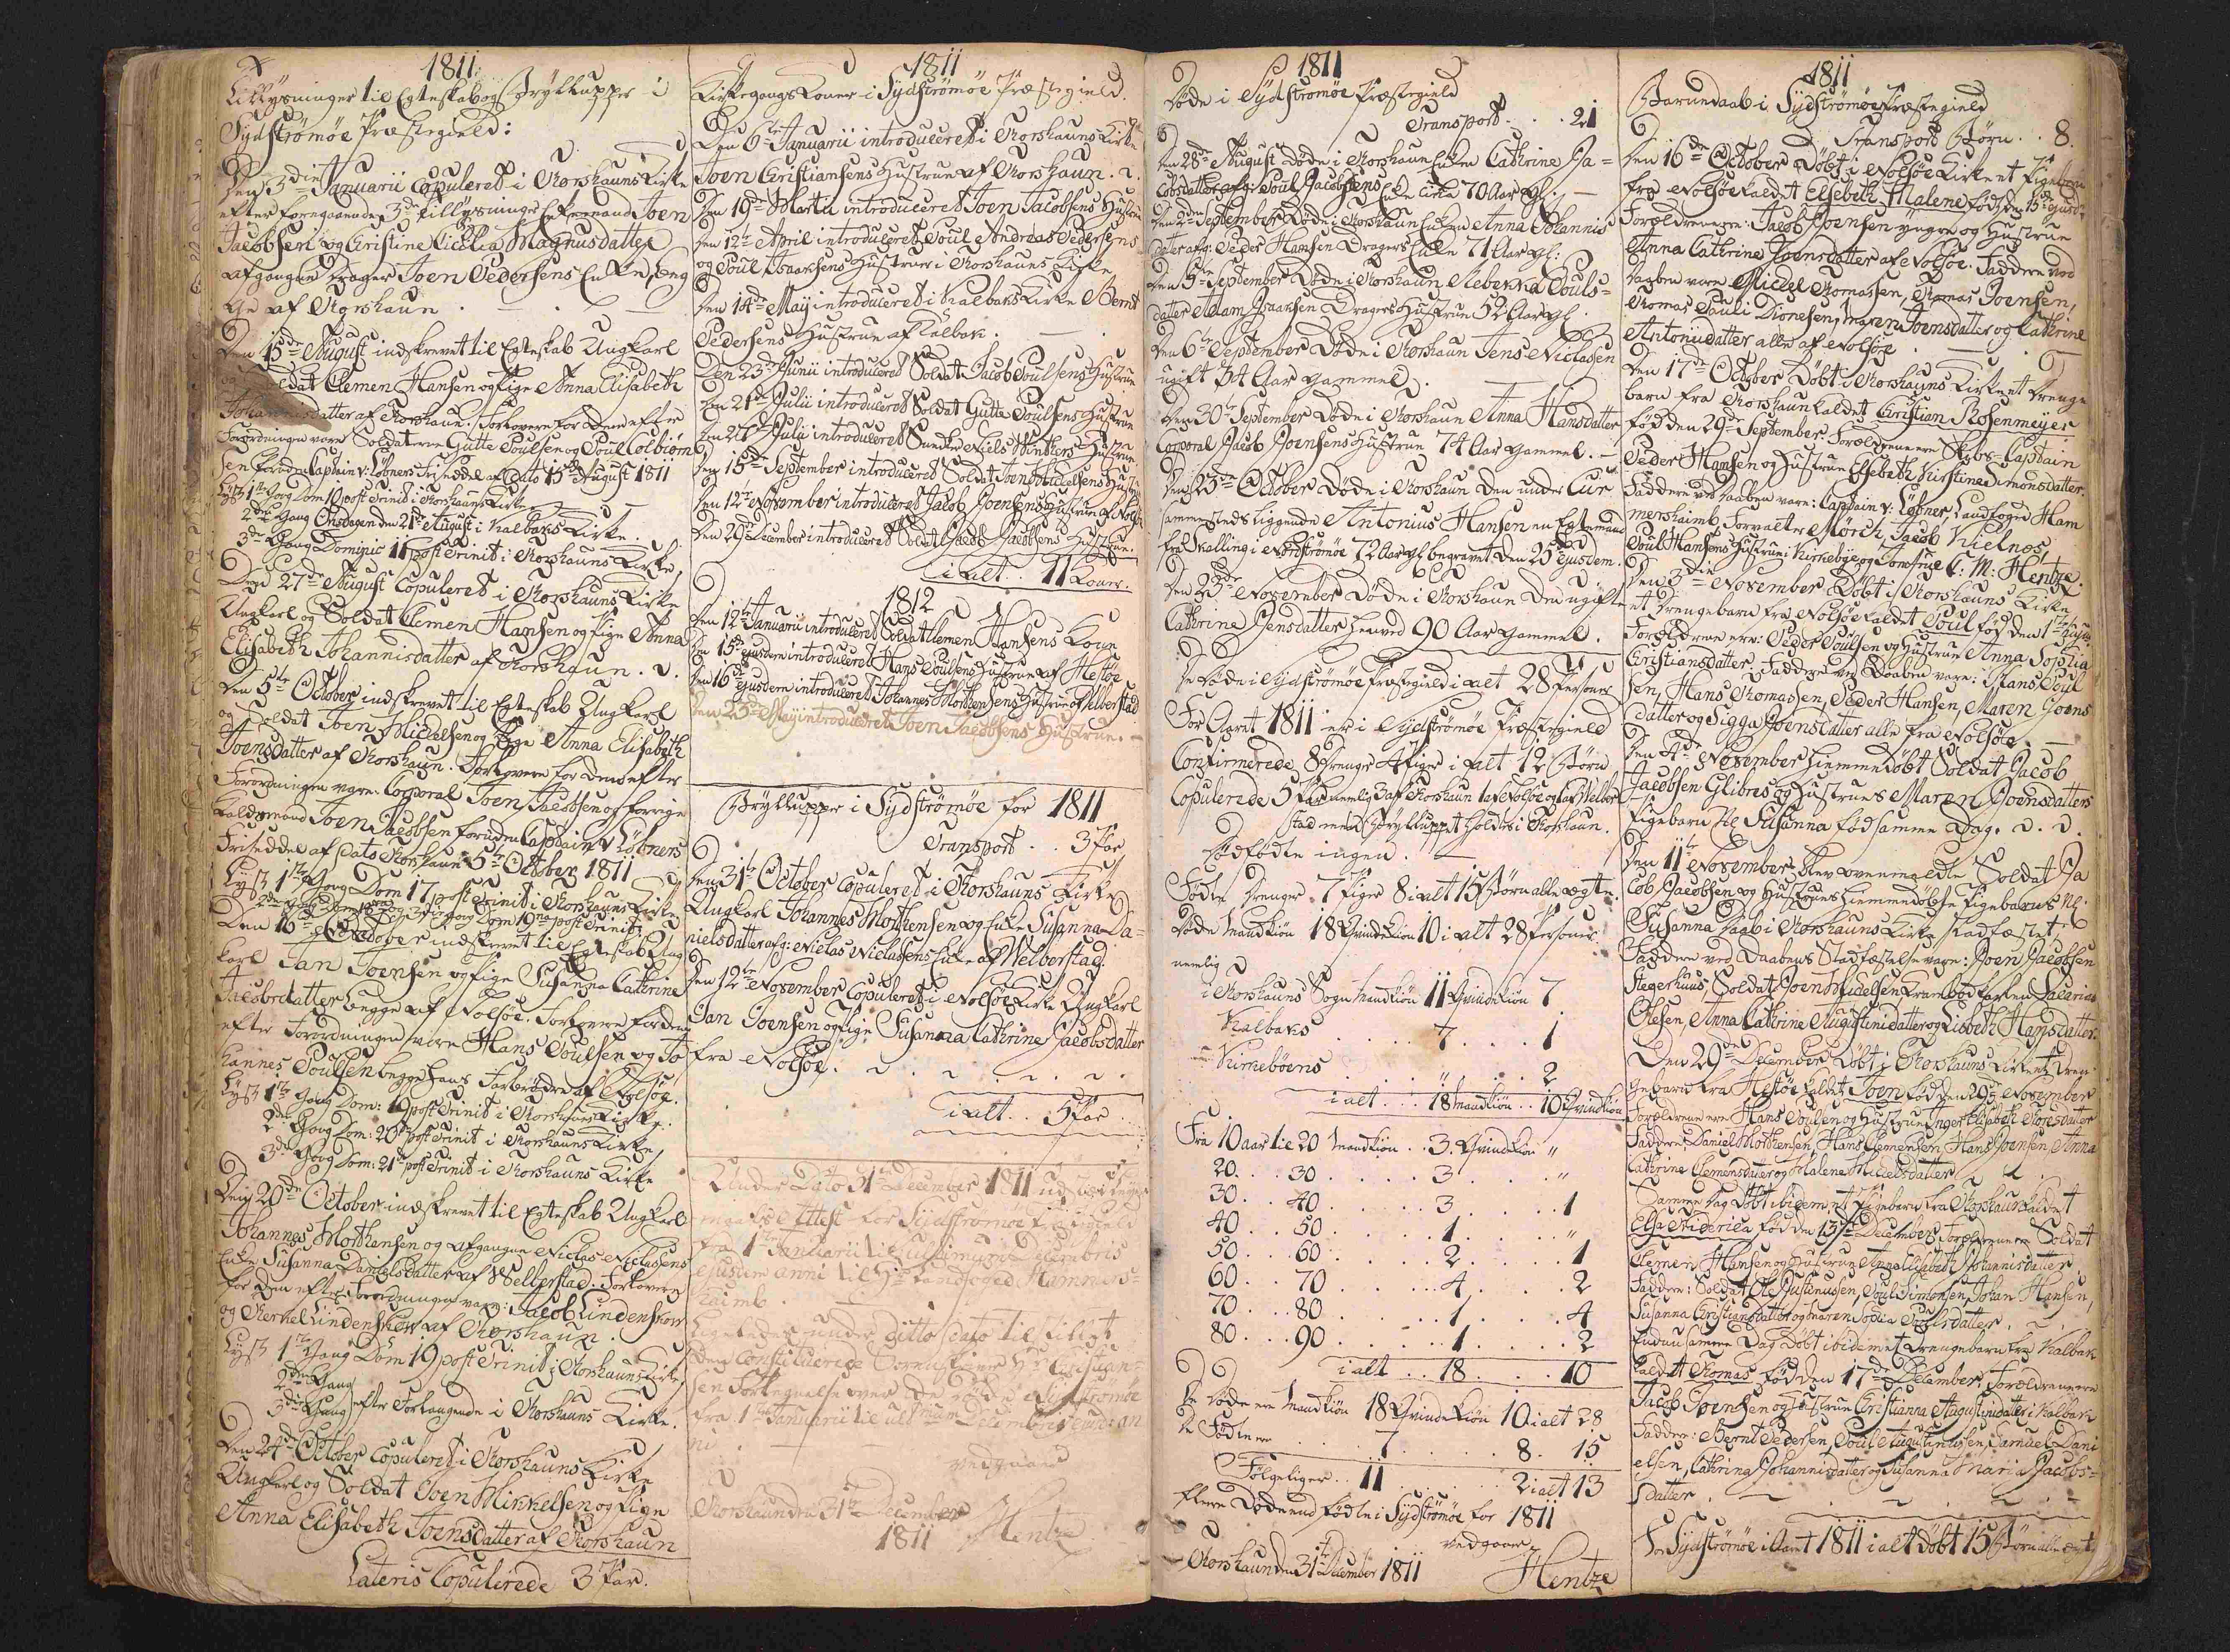 1811
Tillysninger til Egteskab og Brylluppe i
Sydströmöe Præstegield:
Den 3die Januarii Copuleret i Thorshauns Kirke
efter foregaaende 3de Tillysninger Enkemand Joen
Jacobsen og Christine Cicilia Magnusdatter
afgangne Joen Pedersens Enke, beg
ge af Thorshaun
Den 15de August indskrevet til Egteskab Ungkarl
og Soldat Clemen Hansen og Pige Anna Elisabeth
Johannisdatter af Thorshaun. Forlovere for dem efter
Forordningen vare Soldaterne Gutte Poulsen og Poul Colbiörn
sen foruden Captain v: Löbners Friseddel af Dato 15de August 1811
Lyst 1ste Gang Dom 10 post Trinit i Thorshauns Kirke
2den Gang Onsdagen den 21de August i Kalbaks Kirke.
3die Gang Dominic 11 post Trinit: i Thorshauns Kirke,
Den 27de August Copuleret i Thorshauns Kirke
Ungkarl og Soldat Clemen Hansen og Pige Anna
Elisabeth Johannisdatter af Thorshaun.
Den 5te October indskrevet til Egteskab Ungkarl
og Soldat Joen Michelsen og Pige Anna Elisabeth
Joensdatter af Thorshaun. Forlovere for dem efter
Forordningen vare Corporal Joen Jacobsen og forrige
Joen Jacobsen foruden Captain v Löbners
Friseddel af Dato Thorshaun 5te October 1811
Lyst 1ste Gang Dom 17 post Trinit i Thorshauns Kirke
2den Gang Dom 18 3die Gang Dom 19 post Trinit:
Den 16de October indskrevet til Egteskab Ung
karl Jan Joensen og Pige Susanna Cathrine
Jacobsdatter begge af Nolsöe. Forlovere for dem
efter Forordningen vare Hans Poulsen og Jo
hannes Poulsen begge hans Farbrödre af Nolsöe.
Lyst 1ste Gang Dom: 19 post Trinit i Thorshauns Kirke.
2den Gang Dom: 20 post Trinit i Thorshauns Kirke,
3die Gang Dom: 21 post Trinit i Thorshauns Kirke
Den 20de October indskrevet til Egteskab Ungkarl
Johannes Morthensen og afgangne Niclas Niclassens
Enke Susanna Danielsdatter af Velberstad. Forlovere
for dem efter Forordningen vare: Jacob Lindenskow
og Therkel Lindenskow af Thorshaun.
Lyst 1ste Gang Dom 19 post Trinit i Thorshauns Kirke,
2den Gang
3die Gang efter Forlangende i Thorshauns Kirke.
Den 24de October Copuleret i Thorshauns Kirke
Ungkarl og Soldat Joen Mikkelsen og Pige
Anna Elisabeth Joensdatter af Thorshaun
Lateris Copulerede 3 Par.
1811
Kirkegangs Koner i Sydströmöe Præstegield.
Den 6te Januarii introduceret i Thorshauns Kirke
Joen Christiansens Hustrue af Thorshaun.
Den 19de Martii introduceret Joen Jacobsens Hustrue
Den 12te April introduceret Poul Andreas Pedersens
og Poul Isaachsens Hustruer i Thorshauns Kirke
Den 14de Maji introduceret i Kalbaks Kirke Bernt
Pedersens Hustrue af Kalbak.
Den 23de Junii introduceret Soldat Jacob Poulsens Hustrue
Den 21de Julii introduceret Soldat Gutte Poulsens Hustrue
Den 28de Julii introduceret Niels Winthers Hustrue
Den 15de September introduceret Soldat Joen Michelsens Hustrue
Den 12te November introduceret Jacob Joensens Hustrue af Nolsöe
Den 29de December introduceret Soldat Jacob Jacobsens Hustrue.
i alt.. 11 Koner.
1812
Den 12te Januarii introduceret Soldat Clemen Hansens Kone
Den 15de ejusdem introduceret Hans Poulsens Hustrue af Hestöe
Den 16de ejusdem introduceret Johannes Morthensens Hustrue af Velberstad
Den 25de Maji introduceret Joen Jacobsens Hustrue.
Brylluppe i Sydströmöe for 1811
Transport.. 3 Par
Den 31te October Copuleret i Thorshauns Kirke
Ungkarl Johannes Morthensen og Enke Susanna Da=
nielsdatter afg: Niclas Niclassens Enke af Velberstad.
Den 12te November Copuleret i Nolsöe Kirke Ungkarl
Jan Joensen og Pige Susanna Cathrine Jacobsdatter
fra Nolsöe.
i alt.. 5 Par
Under Dato 31te December 1811 udstedt
Attest for Sydströmöe Præstegield
fra 1ste Januarii til ultimum Decembris
ejusdem anni til Hr. Landfoged Hammers=
haimb.
Ligeledes under ditto Dato tilstillet
den Constituerede Hr Christian=
sen Fortegnelse over de Döde i Sydströmöe
fra 1ste Januarii til ultimum Decembris ejusd: an
ni.
vedgaaer
Thorshaun den 31te December
1811 Hentze
1811
Döde i Sydströmöe Præstegield
Transport... 21
Den 28de August Döde i Thorshaun Enken Cathrine Ja=
cobsdatter afg: Poul Jacobsens Enke cirka 70 Aar gl.
Den 2den September Döde i Thorshaun Enken Anna Johannis
datter afg: Peder Hansen Dragers Enke 71 Aar gl:
Den 5te September Döde i Thorshaun Rebekka Pouls=
datter Adam Isaaksen Dragers Hustrue 52 Aar gl.
Den 6te September Döde i Thorshaun Jens Niclasen
ugift 34 Aar gammel.
Den 30te September Döde i Thorshaun Anna Hansdatter
Corporal Jacob Joensens Hustrue 74 Aar gammel.
Den 23de October Döde i Thorshaun den under Cur
sammesteds liggende Antonius Hansen en Egtemand
fra Kalling i Nordströmöe 72 Aar gl begravet den 25 ejusdem.
Den 23de November Döde i Thorshaun den ugifte
Cathrine Jensdatter henved 90 Aar gammel.
De Döde i Sydströmöe Præstegield i alt 28 Personer
For Aaret 1811 er i Sydströmöe Præstegield
Confirmerede 8 Drenge 4 Piger i alt 12 Börn
Copulerede 5 Par nemlig 3 af Thorshaun 1 af Nolsöe og 1 af Velber
stad med Brylluppet holdet i Thorshaun.
Dödfödte ingen.
Födte Drenge 7 Piger 8 i alt 15 Börn alle ægte.
Döde Mandkiön 18 Qvindekiön 10 i alt 28 Personer.
nemlig
i Thorshauns Sogn Mandkiön 11 Qvindekiön 7
Kalbaks 7 1
Kirkeböens " 2
i alt... 18 Mandkiön.. 10 Qvindkiön
Fra 10 aar til 20 Mandkiön.. 3. Qvindekiön "
20... 30 3 "
30... 40 3 1
40... 50 1 "
50... 60 2 1
60... 70 4 2
70... 80 1 4
80... 90 1 2
i alt.. 18. 10
De Döde ere Mandkiön 18 Qvindekiön 10 i alt 28
De Födte ere 7 8. 15
Fölgeligen.. 11 2 i alt 13
flere Döde end Födte i Sydströmöe for 1811
vedgaaer
Thorshaun den 31te December 1811 Hentze
1811
Barnedaab i Sydströmöe Præstegield
Transport Börn.. 8.
Den 16de October Döbt i Nolsöe Kirke et Pigebarn
fra Nolsöe kaldet Elsebeth Malene föd den 15de ejusd:
Forældrene ere: Jacob Joensen yngre og Hustrue
Anna Cathrine Joensdatter af Nolsöe. Faddere ved
Daaben vare Michel Thomassen, Thomas Joensen,
Thomas Pauli Dionesen, Maren Joensdatter og Cathrine
Antoniidatter alle af Nolsöe
Den 17de October Döbt i Thorshauns Kirke et Drenge
barn fra Thorshaun kaldet Christian Rosenmeyer
föd den 29de September. Forældrene ere Skibs=Captain
Peder Hansen og Hustrue Elsebeth Kirstine Simonsdatter.
Faddere ved Daaben vare: Captain v: Löbner, Landfoged Ham
mershaimb, Forvalter Mörch, Jacob Nielsøe,
Poul Hansens Hustrue i Kirkebye og Jomfrue C: M: Hentze.
Den 3die November Döbt i Thorshauns Kirke
et Drengebarn fra Nolsöe kaldet Poul föd den 1ste hujus
Forældrene ere: Peder Poulsen og Hustrue Anna Sophia
Christiansdatter. Faddere ved Daaben vare: Hans Poul
sen, Hans Thomassen, Peder Hansen, Maren Joens
datter og Sigga Joensdatter alle fra Nolsöe.
Den 4de November hiemmedöbt Soldat Jacob
Jacobsen Glibres og Hustrues Maren Joensdatters
Pigebarn Nl Susanna föd samme Dag.
Den 11te November blev ovenmeldte Soldat Ja
cob Jacobsen og Hustrues hiemmedöbte Pigebarns Nl.
Susanna Daab i Thorshauns Kirke stadfæstet.
Faddere ved Daabens Stadfæstelse vare: Joen Jacobsen
Stegerhuus, Soldat Joen Michelsen, Zacarias
Olesen, Anna Cathrine Augustinidatter og Lisbeth Hansdatter.
Den 29de December Döbt i Thorshauns Kirke et Dren
gebarn fra Hestöe kaldet Joen föd den 29de November
Forældrene ere Hans Poulsen og Hustrue Inger Elisabeth Thoresdatter
Faddere: Daniel Morthensen, Hans Clementsen, Hans Joensen, Anna
Cathrine Clemensdatter og Malene Michelsdatter.
Samme Dag Döbt ibidem et Pigebarn fra Thorshaun kaldet
Elsa Friderica föd den 13de December. Forældrene ere Soldat
Clemen Hansen og Hustrue Anna Elisabeth Johannisdatter
Faddere: Soldat Ole Justinussen, Poul Simonsen, Johan Hansen,
Susanna Christiansdatter og Maren Sophia Poulsdatter.
Endnu samme Dag Döbt ibidem et Drengebarn fra Kalbak
kaldet Thomas föd den 17de December. Forældrene ere
Jacob Joensen og Hustrue Christianna Augustinidatter i Kalbak
Faddere: Bernt Pedersen, Poul Augustinussen, Samuel Dani
elsen, Cathrina Johannisdatter og Susanna Maria Jacobs=
datter.
For Sydströmöe i Aaret 1811 i alt döbt 15 Börn alle ægte